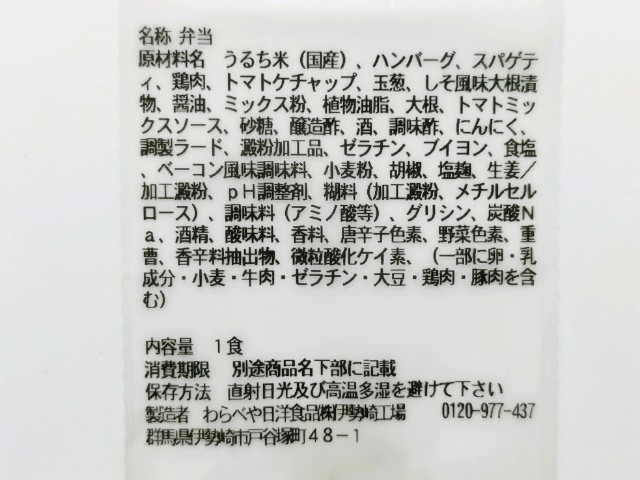 名称 弁当
原材料名 うるち米（国産）、ハンバーグ、スパゲテ
ィ、鶏肉、トマトケチャップ、玉葱、しそ風味大根漬
物、醤油、ミックス粉、植物油脂、大根、トマトミッ
クスソース、砂糖、醸造酢、酒、調味酢、にんにく、
調製ラード、澱粉加工品、ゼラチン、ブイヨン、食塩
、ベーコン風味調味料、小麦粉、胡椒、塩麹、生姜／
加工澱粉、ｐＨ調整剤、糊料（加工澱粉、メチルセル
ロース）、調味料（アミノ酸等）、グリシン、炭酸Ｎ
ａ、酒精、酸味料、香料、唐辛子色素、野菜色素、重
曹、香辛料抽出物、微粒酸化ケイ素、（一部に卵・乳
成分・小麦・牛肉・ゼラチン・大豆・鶏肉・豚肉を含
む）
内容量 １食
消費期限 別途商品名下部に記載
保存方法 直射日光及び高温多湿を避けて下さい
製造者 わらべや日洋食品㈱伊勢崎工場 0120-977-437
群馬県伊勢崎市戸谷塚町４８－１